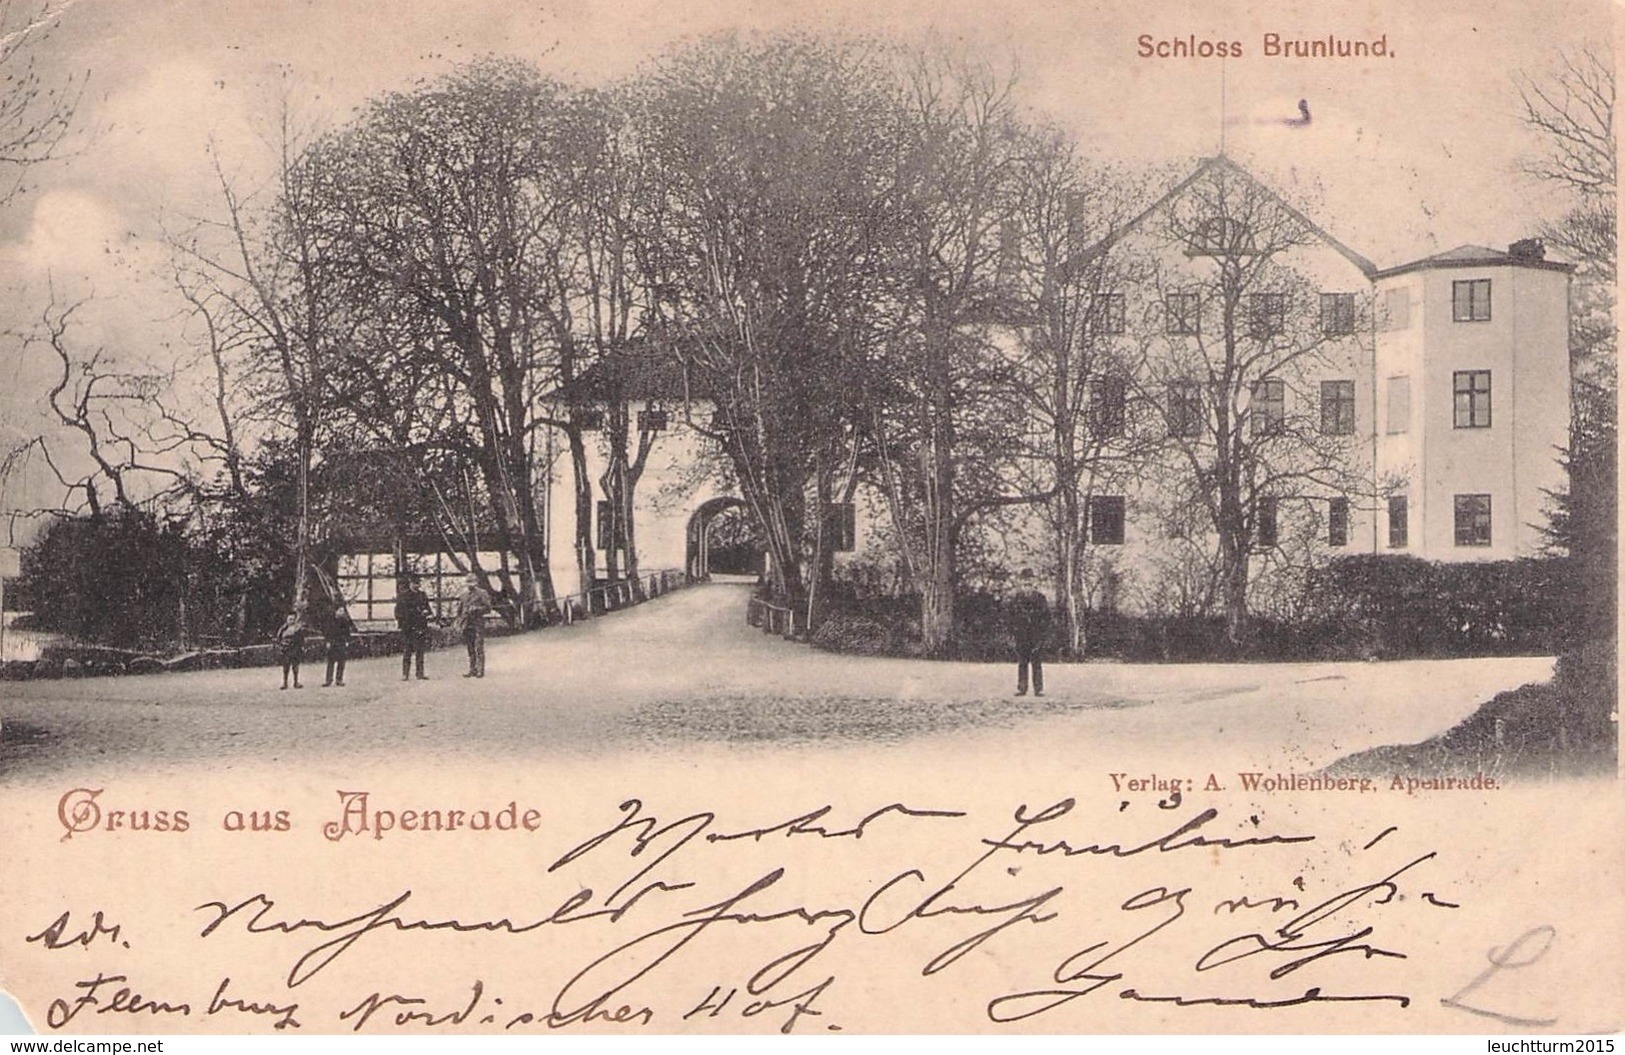 Schloss Brunlund.
Verlag: A. Wohlenberg, Apenrade.
Gruss aus Apenrade
Wertes Fräulein!
Nochmals herzliche Grüße
Adr.
Ihr
Flensburg Nordischer Hof.
www.delcampe.net
leuchtturm2015